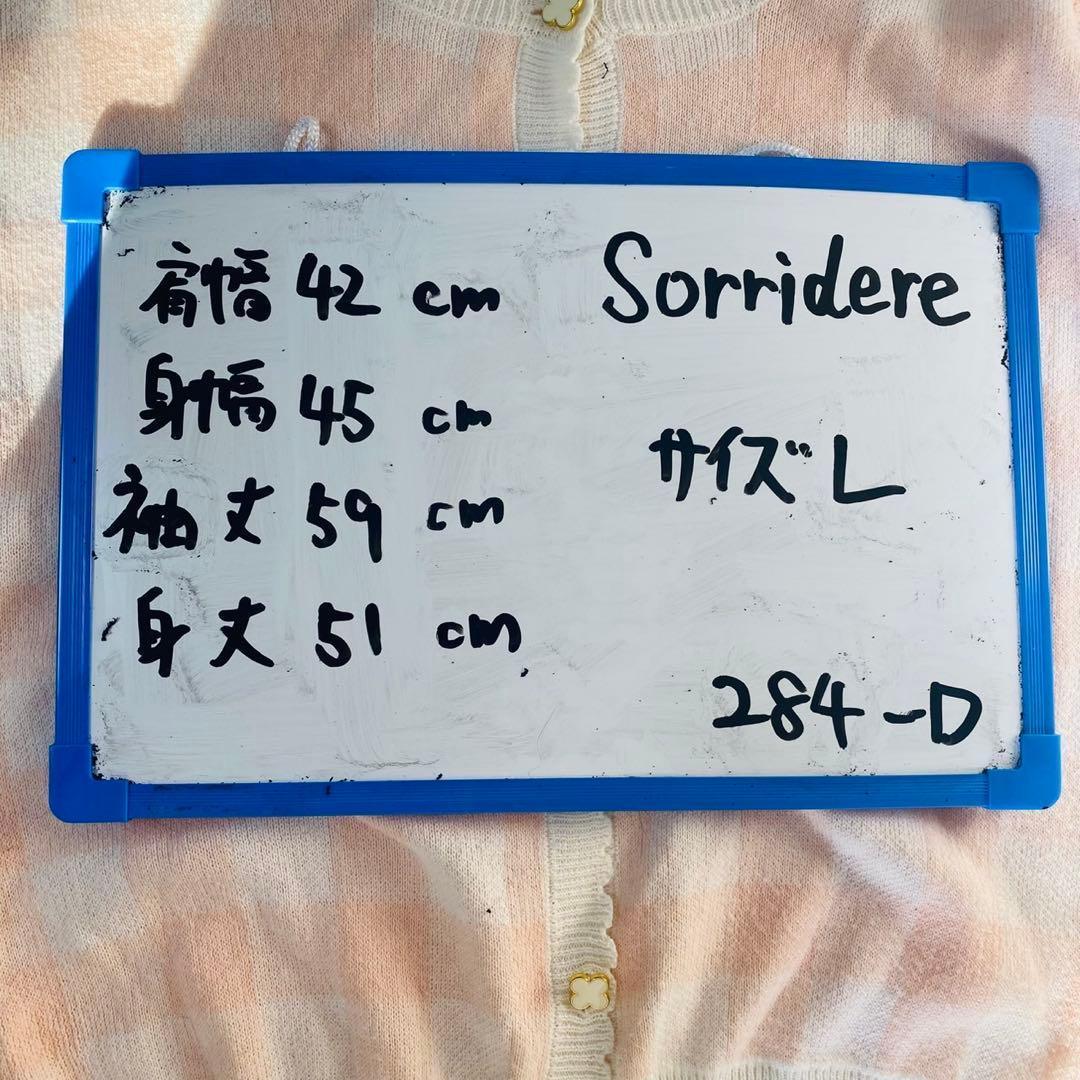 肩幅 42 cm
身幅 45 cm
袖丈 59 cm
身丈 51 cm
Sorridere
サイズ L
284-D